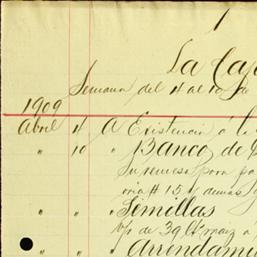 1
La Caja
Semana del 4 al 10 de
1909
Abril 4 A Existencia á la
" 10 " Banco de
Su remesa para pa
oria # 15 y demas
" " " Semillas
v/p de 39 Hl maiz a
" " " Arrendami